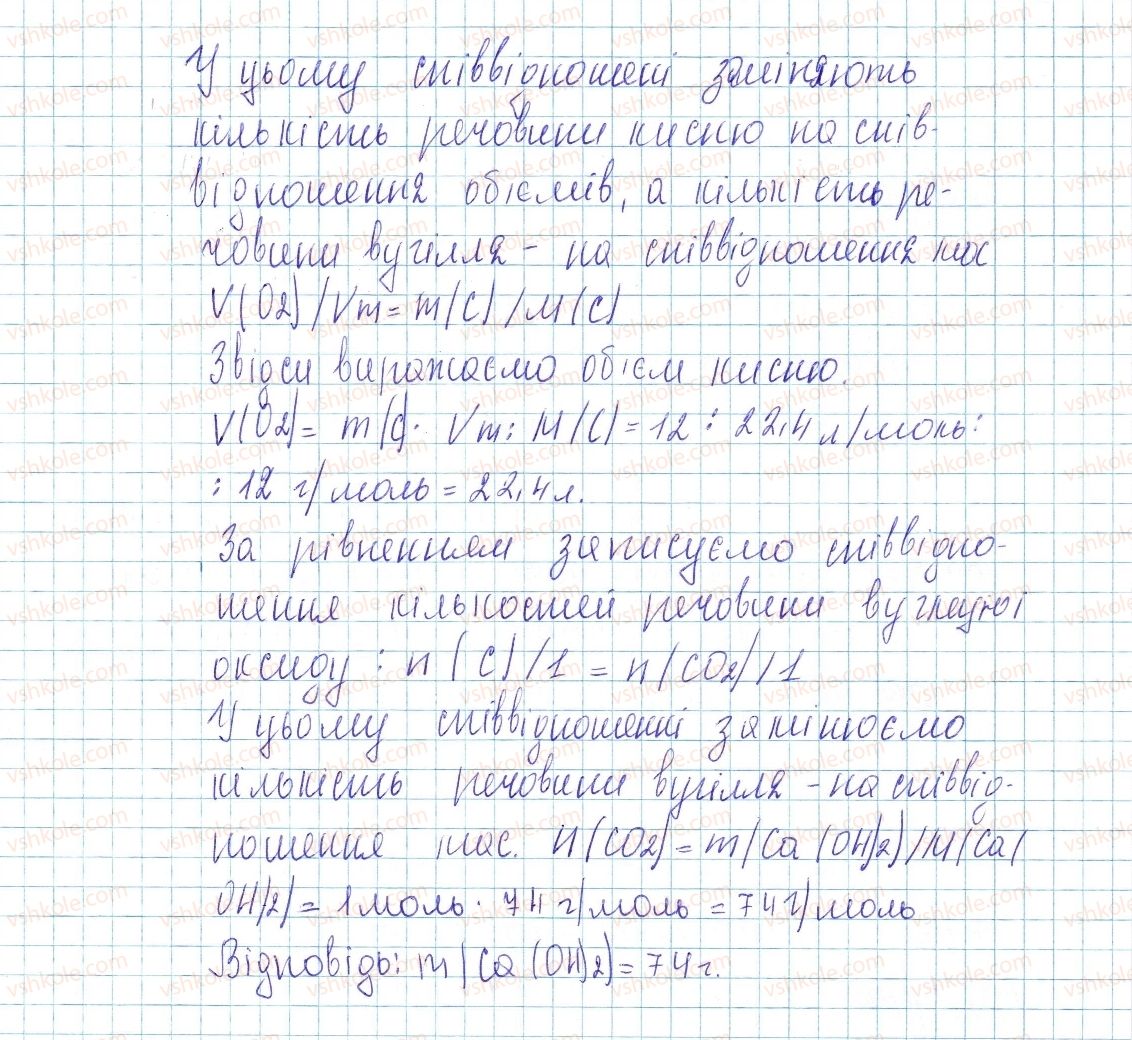 У цьому співвідношені заміняють
кількість речовини кисню на спів-
відношення обіємів, а кількість ре-
човини вугілля - на співвідношення мас
V(O2)/Vm=m(C)/M(C)
Звідси виражаємо обієм кисню.
V(O2)= m(C)· Vm: M(C)=12 : 22,4 л/моль:
: 12 г/моль = 22,4 л.
За рівненням записуємо співвідно-
шення кількостей речовини вуглецю і
оксиду : n(C)/1 = n(CO2)/1
У цьому співвідношенні замінюємо
кількість речовини вугілля - на співвід-
ношення мас. n(CO2)=m(Ca(OH)2)/M(Ca(
OH)2)= 1 моль · 74 г/моль = 74 г/моль
Відповідь: m(Ca(OH)2)=74 г.